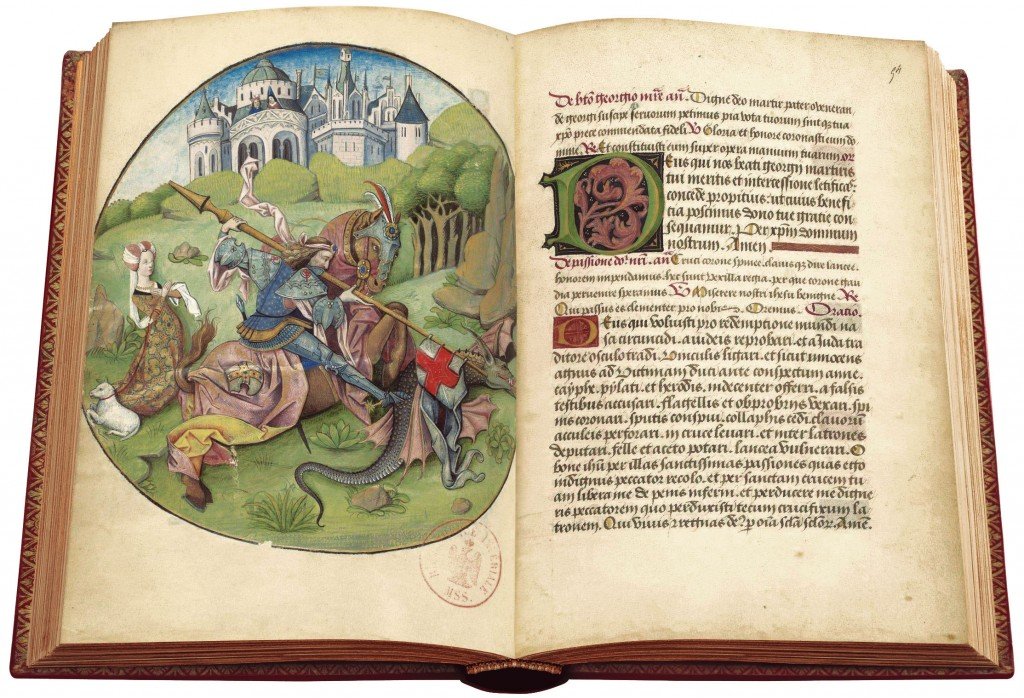 54
De bto georgio mre an. Digne deo martir pater o veneran
de georgi suscipe servorum petimus pia vota tuorum sint q̃z tua
xpo prece commendata fideli V Gloria et honore coronasti eum do
mine R Et constituisti eum super opera manuum tuarum or
Deus qui nos beati georgii martiris
tui meritis et intercessione letificas:
concede propitius: ut cuius benefi
cia poscimus dono tue gratie con
sequamur. Per xpm dominum
nostrum. Amen
De passione dor nri. an Cruci corone spinee clavis q̃z dire lancee
honorem impendamus. hec sunt vexilla regia. per que corone gau
dia pervenire speramus V Miserere nostri ihesu benigne Re
Qui passus es clementer pro nobis Oremus. Oratio.
Deus qui voluisti pro redemptione mundi na
sci circuncidi. a iudeis reprobari. et a Iuda tra
ditore osculo tradi. Vinculis ligari. et sicut innocens
agnus ad Victimam duci ante conspectum anne.
cayphe. pylati. et herodis. indecenter offerri. a falsis
testibus accusari. flagellis et obprobriis vexari. spi
nis coronari. sputis conspui. collaphis cedi. clavorum
acculeis perforari. in cruce levari. et inter latrones
deputari. felle et aceto potari. lancea vulnerari. O
bone ihu per illas sanctissimas passiones quas ego
indignus peccator recolo. et per sanctam crucem tu
am libera me de penis inferni. et perducere me digne
ris peccatorem quo perduxisti tecum crucifixum la
tronem. Qui vivis z regnas de9 p oia scla sclor. Ame.
MSS.